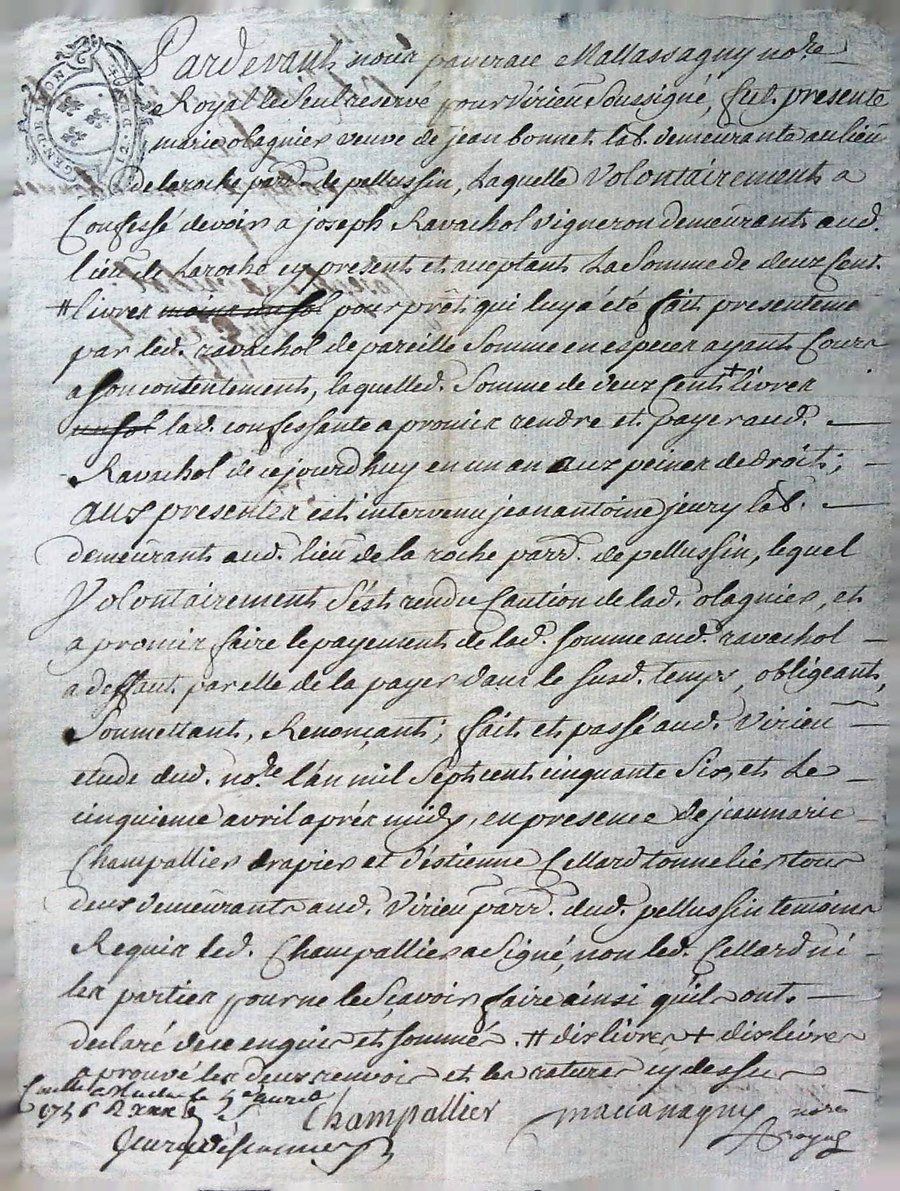 GEN. DE LYON
Pardevant nous pancrace Mattassagny nore
Royal le Seul reservé pour Virieu Soussigné, fut presente
marie olagnier veuve de jean bonnet lab. demeurante au lieu
de laroche parr. de pellussin, Laquelle Volontairement a
Confesse devoir a joseph Ravachol vigneron demeurant aud.
lieu de Laroche cy present et acceptant La Somme de deux Cent
# livres moins un sol pour prêt qui luy a été fait presenteme
par led. ravachol de pareille Somme en especes ayant Cours
a son contentement, laquelled. Somme de deux Cent + livres
un sol lad. confessante a promis rendre et payer aud.
Ravachol de cejourdhuy en un an aux peines de droit ;
aux presentes est intervenu jean antoine jeury lab.
demeurant aud. lieu de la roche parr. de pellussin, lequel
Volontairement s'est rendu Caution de lad. olagnier, et
a promis faire le payement de lad. somme aud. ravachol
a deffaut par elle de la payer dans le susd. temps, obligeant,
Soumettant, Renonçant ; fait et passé aud. Virieu
etude dud. nore l'an mil Sept cent cinquante Six, et Le
cinquieme avril après midy, en presence de jean marie
Champallier drapier et d'estienne Cellard tonnelier tous
deux demeurants aud. Virieu parr. dud. pellussin temoins
Requis led. Champallier a Signé, non led. Cellard ni
les parties pour ne le Sçavoir faire ainsi qu'ils ont
declaré de ce enquis et sommés. # dix livres + dix livres
aprouvé les deux renvois et les ratures cy dessus
le 5e avril
1756 R
Champallier
nore
royal